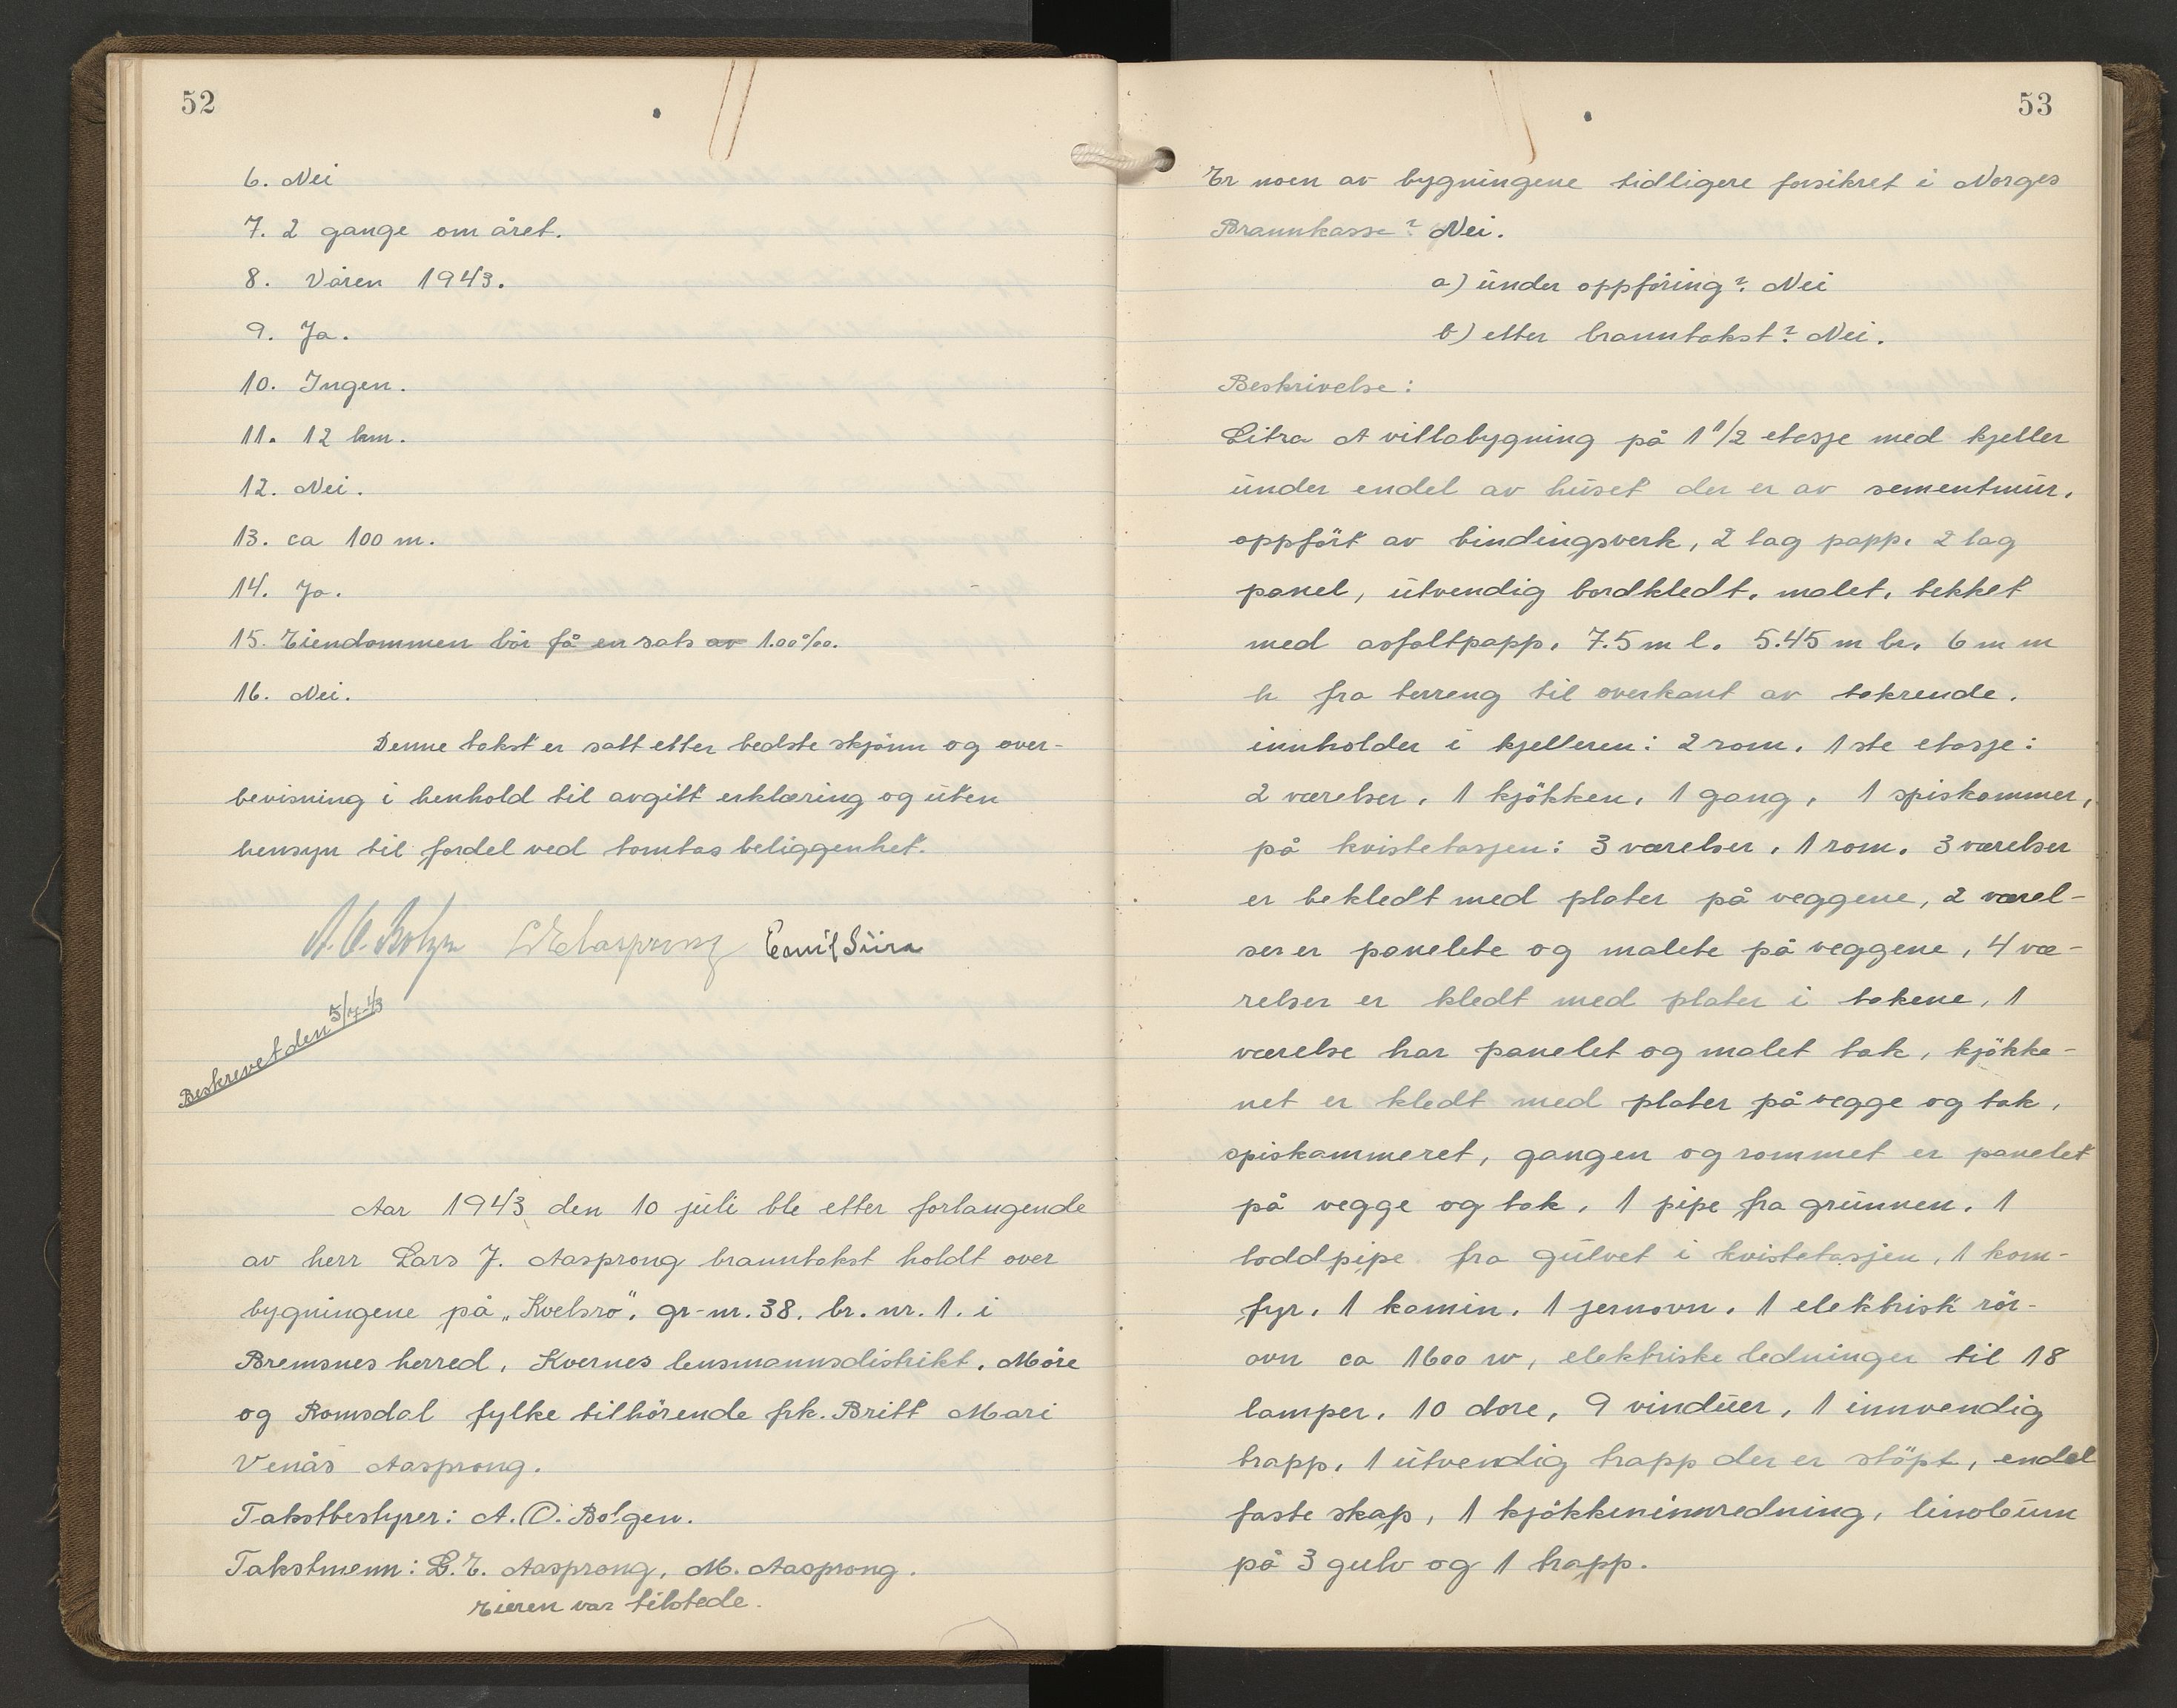 52
6. Nei
7. 2 gange om året.
8. Våren 1943.
9. Ja.
10. Ingen.
11. 12 km.
12. Nei.
13. ca 100 m.
14. Ja.
15. Eiendommen bör få en sats av 1.00‰.
16. Nei.
Denne takst er satt etter bedste skjönn og over-
bevisning i henhold til avgitt erklæring og uten
hensyn til fordel ved tomtas beliggenhet.
A. O. Bolgen L E Aasprong Emil
Beskrevet den 5/7-43
Aar 1943 den 10 juli ble etter forlangende
av herr Lars J. Aasprong branntakst holdt over
bygningene på „Kvelsro". gr-nr. 38. br. nr. 1. i
Bremsnes herred, Kvernes lensmannsdistrikt, Möre
og Romsdal fylke tilhörende frk. Britt Mari
Venås Aasprong.
Takstbestyrer: A. O. Bolgen.
Takstmenn: L. E. Aasprong, M. Aasprong.
Eieren var tilstede.
53
Er noen av bygningene tidligere forsikret i Norges
Brannkasse? Nei.
a) under oppföring? Nei
b) etter branntakst? Nei.
Beskrivelse:
Litra A villabygning på 1 1/2 etasje med kjeller
under endel av huset der er av sementmur.
oppfört av bindingsverk, 2 lag papp. 2 lag
panel, utvendig bordkledt. malet, tekket
med asfaltpapp. 7.5 m l. 5.45 m br. 6 m m
h fra terreng til overkant av takrende.
innholder i kjelleren: 2 rom. 1 ste etasje:
2 værelser, 1 kjökken, 1 gang, 1 spiskammer,
på kvistetasjen: 3 værelser, 1 rom. 3 værelser
er bekledt med plater på veggene, 2 værel-
ser er panelete og malete på veggene, 4 væ-
relser er kledt med plater i takene, 1
værelse har panelet og malet tak, kjökke-
net er kledt med plater på vegge og tak,
spiskammeret, gangen og rommet er panelet
på vegge og tak, 1 pipe fra grunnen. 1
loddpipe fra gulvet i kvistetasjen, 1 kom-
fyr. 1 kamin. 1 jernovn. 1 elektrisk rör-
ovn ca 1600 w, elektriske ledninger til 18
lamper, 10 dore, 9 vinduer, 1 innvendig
trapp, 1 utvendig trapp der er stöpt, endel
faste skap, 1 kjökkeninnredning, linoleum
på 3 gulv og 1 trapp.